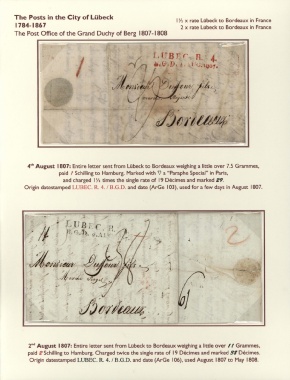 The Posts in the City of Lübeck
1784-1867
The Post Office of the Grand Duchy of Berg 1807-1808
1½ x rate Lübeck to Bordeaux in France
2 x rate Lübeck to Bordeaux in France
LUBEC. R. 4.
Monsieur Dufour fils
Bordeaux
4th August 1807: Entire letter sent from Lübeck to Bordeaux weighing a little over 7.5 Grammes,
paid 1 Schilling to Hamburg. Marked with "Paraphe Special" in Paris,
and charged 1½ times the single rate of 19 Décimes and marked 29.
Origin datestamped LUBEC. R. 4. / B.G.D. and date (ArGe 103), used for a few days in August 1807.
LUBEC. R.
Monsieur Dufour fils
Bordeaux
2nd August 1807: Entire letter sent from Lübeck to Bordeaux weighing a little over 11 Grammes,
paid 2 Schilling to Hamburg. Charged twice the single rate of 19 Décimes and marked 38 Décimes.
Origin datestamped LUBEC. R. 4. / B.G.D. and date (ArGe 106), used August 1807 to May 1808.